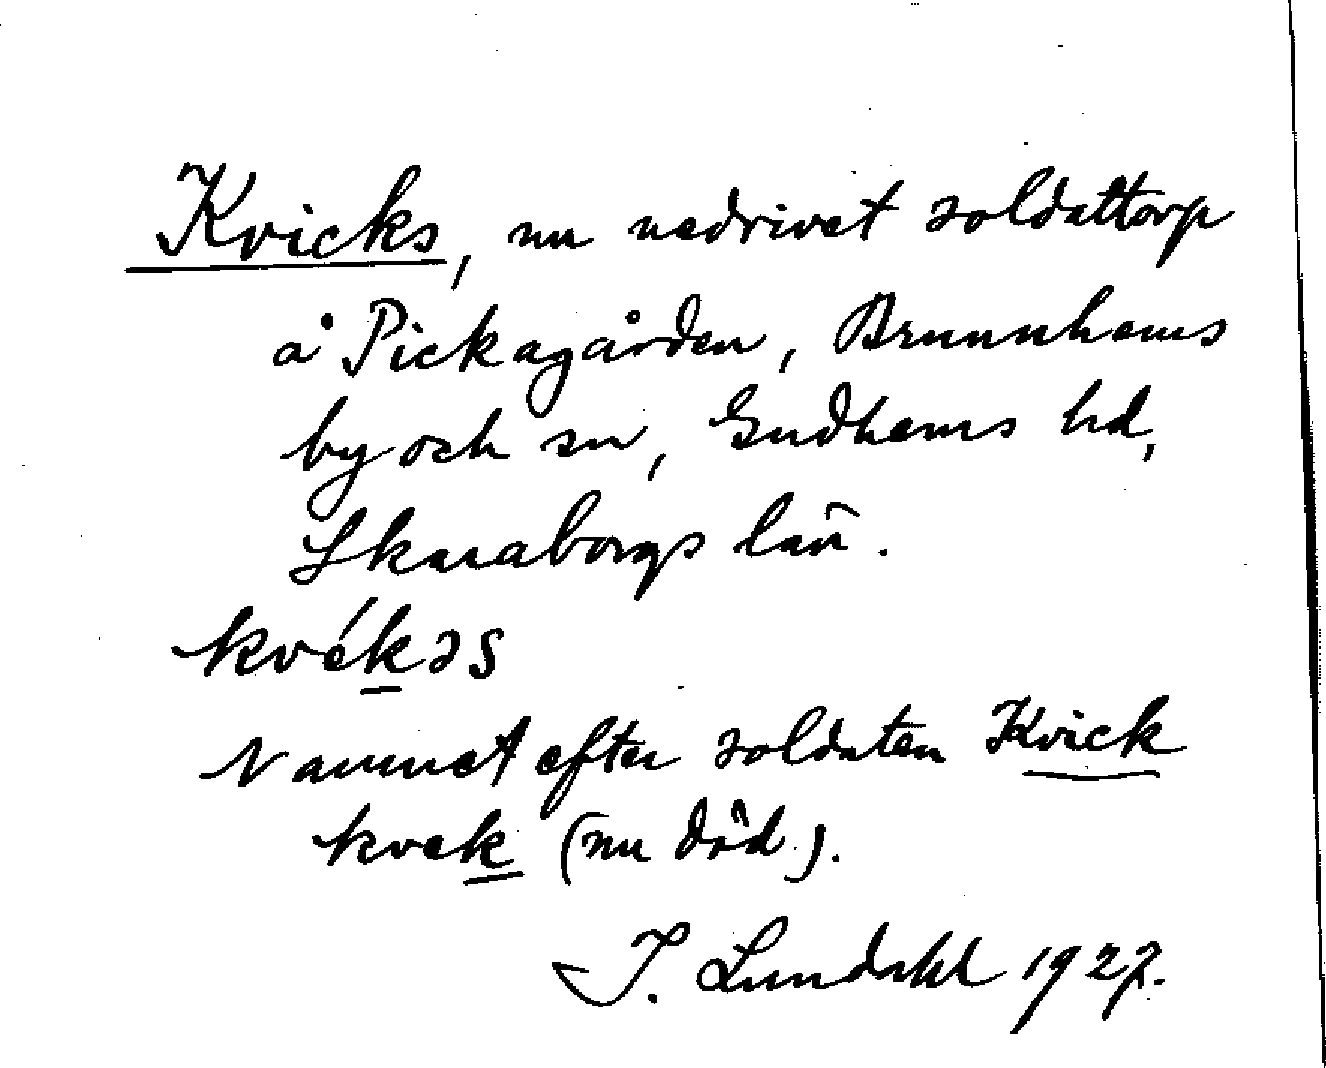 Kvicks, nu nedrivet soldattorp
å Pickagården, Brunnhems
by och sn, Gudhems hd,
Skaraborgs län.
kvékəs
Namnet efter soldaten Kvick
kvek (nu död).
I. Lundahl 1927.